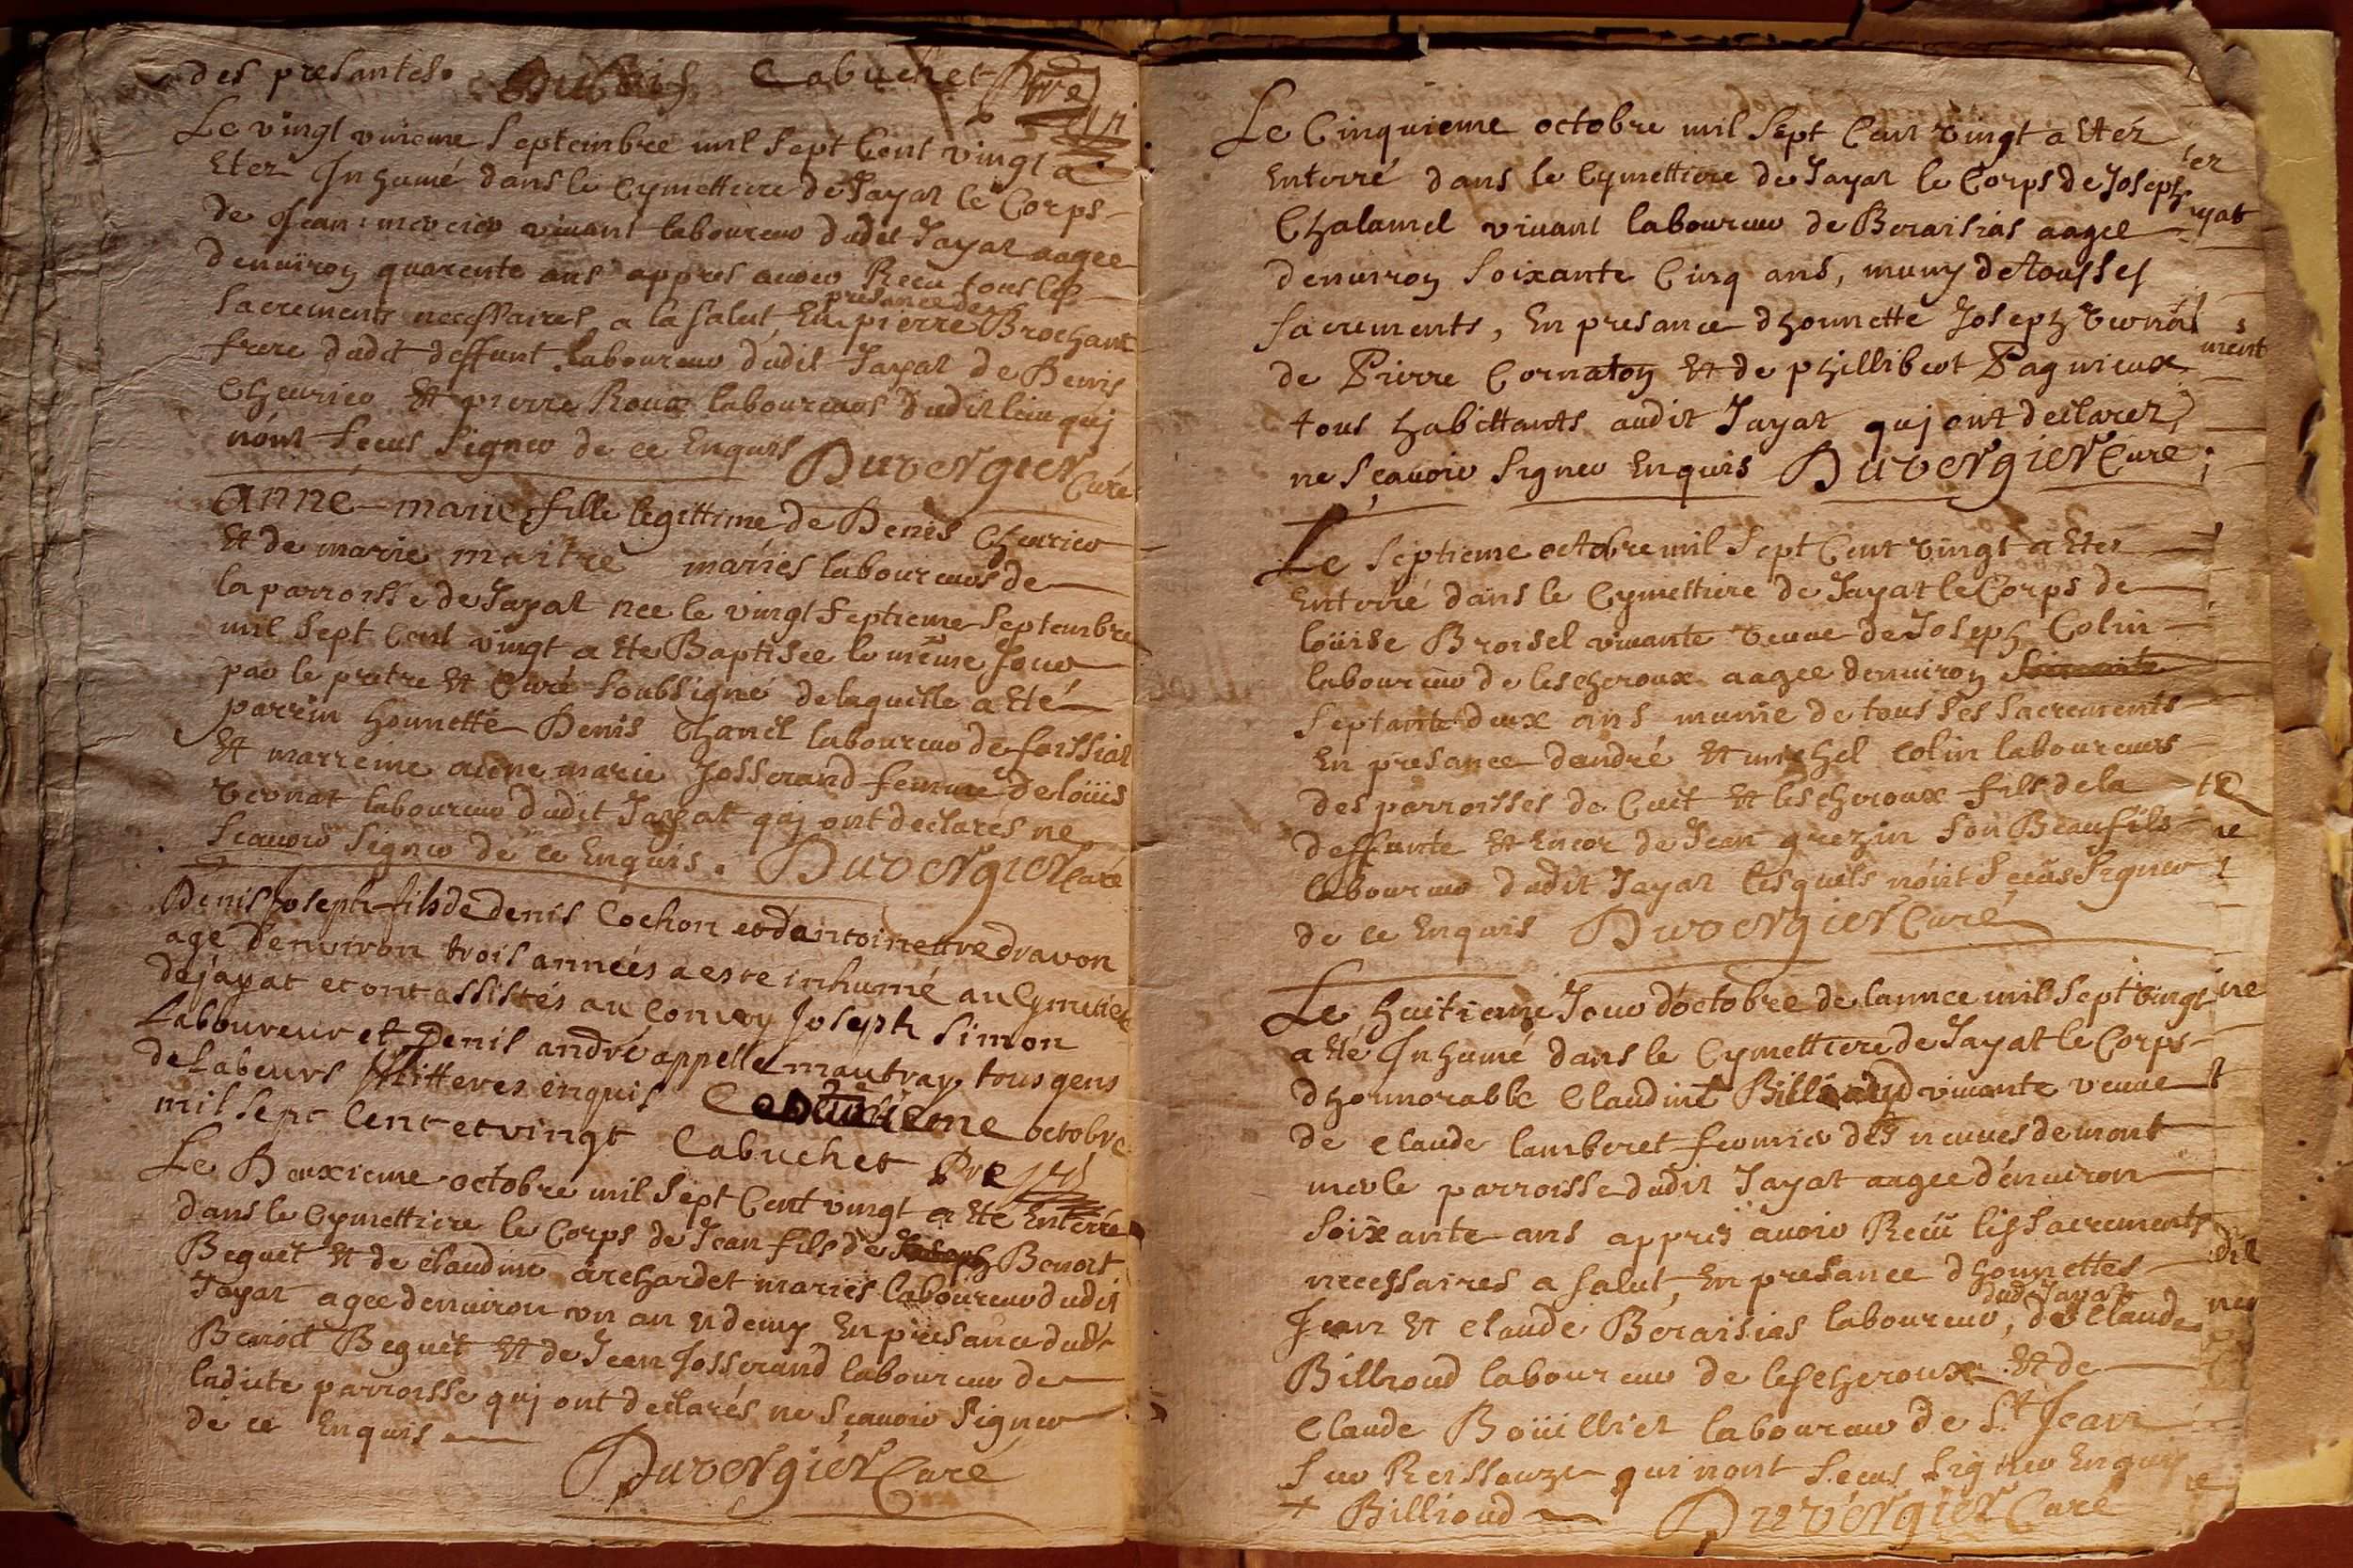 des presantes. Cabuchet Ptre
Le vingt unieme Septembre mil Sept Cent vingt a
Etez Inhumé dans le Cymettiere de Jayat le Corps
de Jean mercier vivant laboureur dudit Jayat aagee
denuiron quarente ans appres auoir Recu tous les
presance de
Sacrements necessaires a la salut, En pierre Brochant
frere dudit deffunt laboureur dudit Jayat de Denis
Cheurier Et pierre Roux laboureurs dudit lieu quj
nónt Sceus Signer de ce Enquis Duvergier Curé
anne-marie fille legittime de Denis Cheurier
Et de marie maitre mariés laboureurs de
la parroisse de Jayat nee le vingt Septieme Septembre
mil Sept Cent vingt a Ete Baptisee le même Jour
par le pretre Et Curé Soubsigné de laquelle a Eté
parrin honnette Denis Chanel laboureur de foissiat
Et marreine anne marie Josserand femme de loüis
vernat laboureur dudit Jayat quj ont declarés ne
Scauoir Signer de ce Enquis. Duvergier Curé
Denis Joseph fils de denis Cochon et dantoinette dravon
agé d'environ trois années a este inhumé au Cymetiere
de jayat et ont assistés au Convoy Joseph Simon
Laboureur et Denis andré appelle mautray tous gens
de Labeurs Illitteres enquis octobre
mil sept Cent et vingt Cabuchet Ptre
Le Deuxieme octobre mil Sept Cent vingt a Eté Enterré
dans le Cymettiere le Corps de Jean fils de Joseph Benoit
Beguet Et de claudine archardet mariés laboureur dudit
Jayat agee denuiron un an Et demy En presance dudt
Benoit Beguet Et de Jean Josserand laboureur de
ladicte parroisse quj ont declarés ne Sçauoir Signer
de ce Enquis
Duvergier Curé
Le Cinquieme octobre mil Sept Cent vingt a Etéz
Enterré dans le Cymettiere de Jayat le Corps de Joseph
Chalamel viuant laboureur de Beraisias aagee
denuiron Soixante Cinq ans, muny de tous Ses
sacrements, En presance dhonnette Joseph Vernat
de Pierre Cornaton Et de phillibert Pagnieux
tous habittants audit Jayat quj ont declarez
ne Sçauoir Signer Enquis Duvergier Curé
Le Septieme octobre mil Sept Cent vingt a Etez
Enterré dans le Cymettiere de Jayat le Corps de
loüise Broisel viuante veuue de Joseph Colin
laboureur de lescheroux aagee denuiron
Septante deux ans munie de tous Ses Sacrements
En presance dandré Et michel Colin laboureurs
des parroisses de Cuet Et lescheroux fils de la
deffunte Et Encor de Jean grezin Son Beaufils
laboureur dudit Jayat lesquels nónt Sceüs Signer
de ce Enquis Duvergier Curé
Le huitieme Jour doctobre de lannee mil Sept vingt
a Eté Inhumé dans le Cymettiere de Jayat le Corps
dhonnorable Claudine vivante veuue
de Claude lamberet fermier des neuues de mont
merle parroisse dudit Jayat aagee dénuiron
Soixante ans appres auoir Reçü les Sacrements
necessaires a Salut, En presance dhonnettes
dud Jayat
Jean Et Claude Beraisias laboureur, de Claude
Billioud laboureur de lescheroux Et de
Claude Boüillier laboureur de St Jean
Sur Reissouze qui nont Sceus Signer Enquis
+ Billioud Duvergier Curé